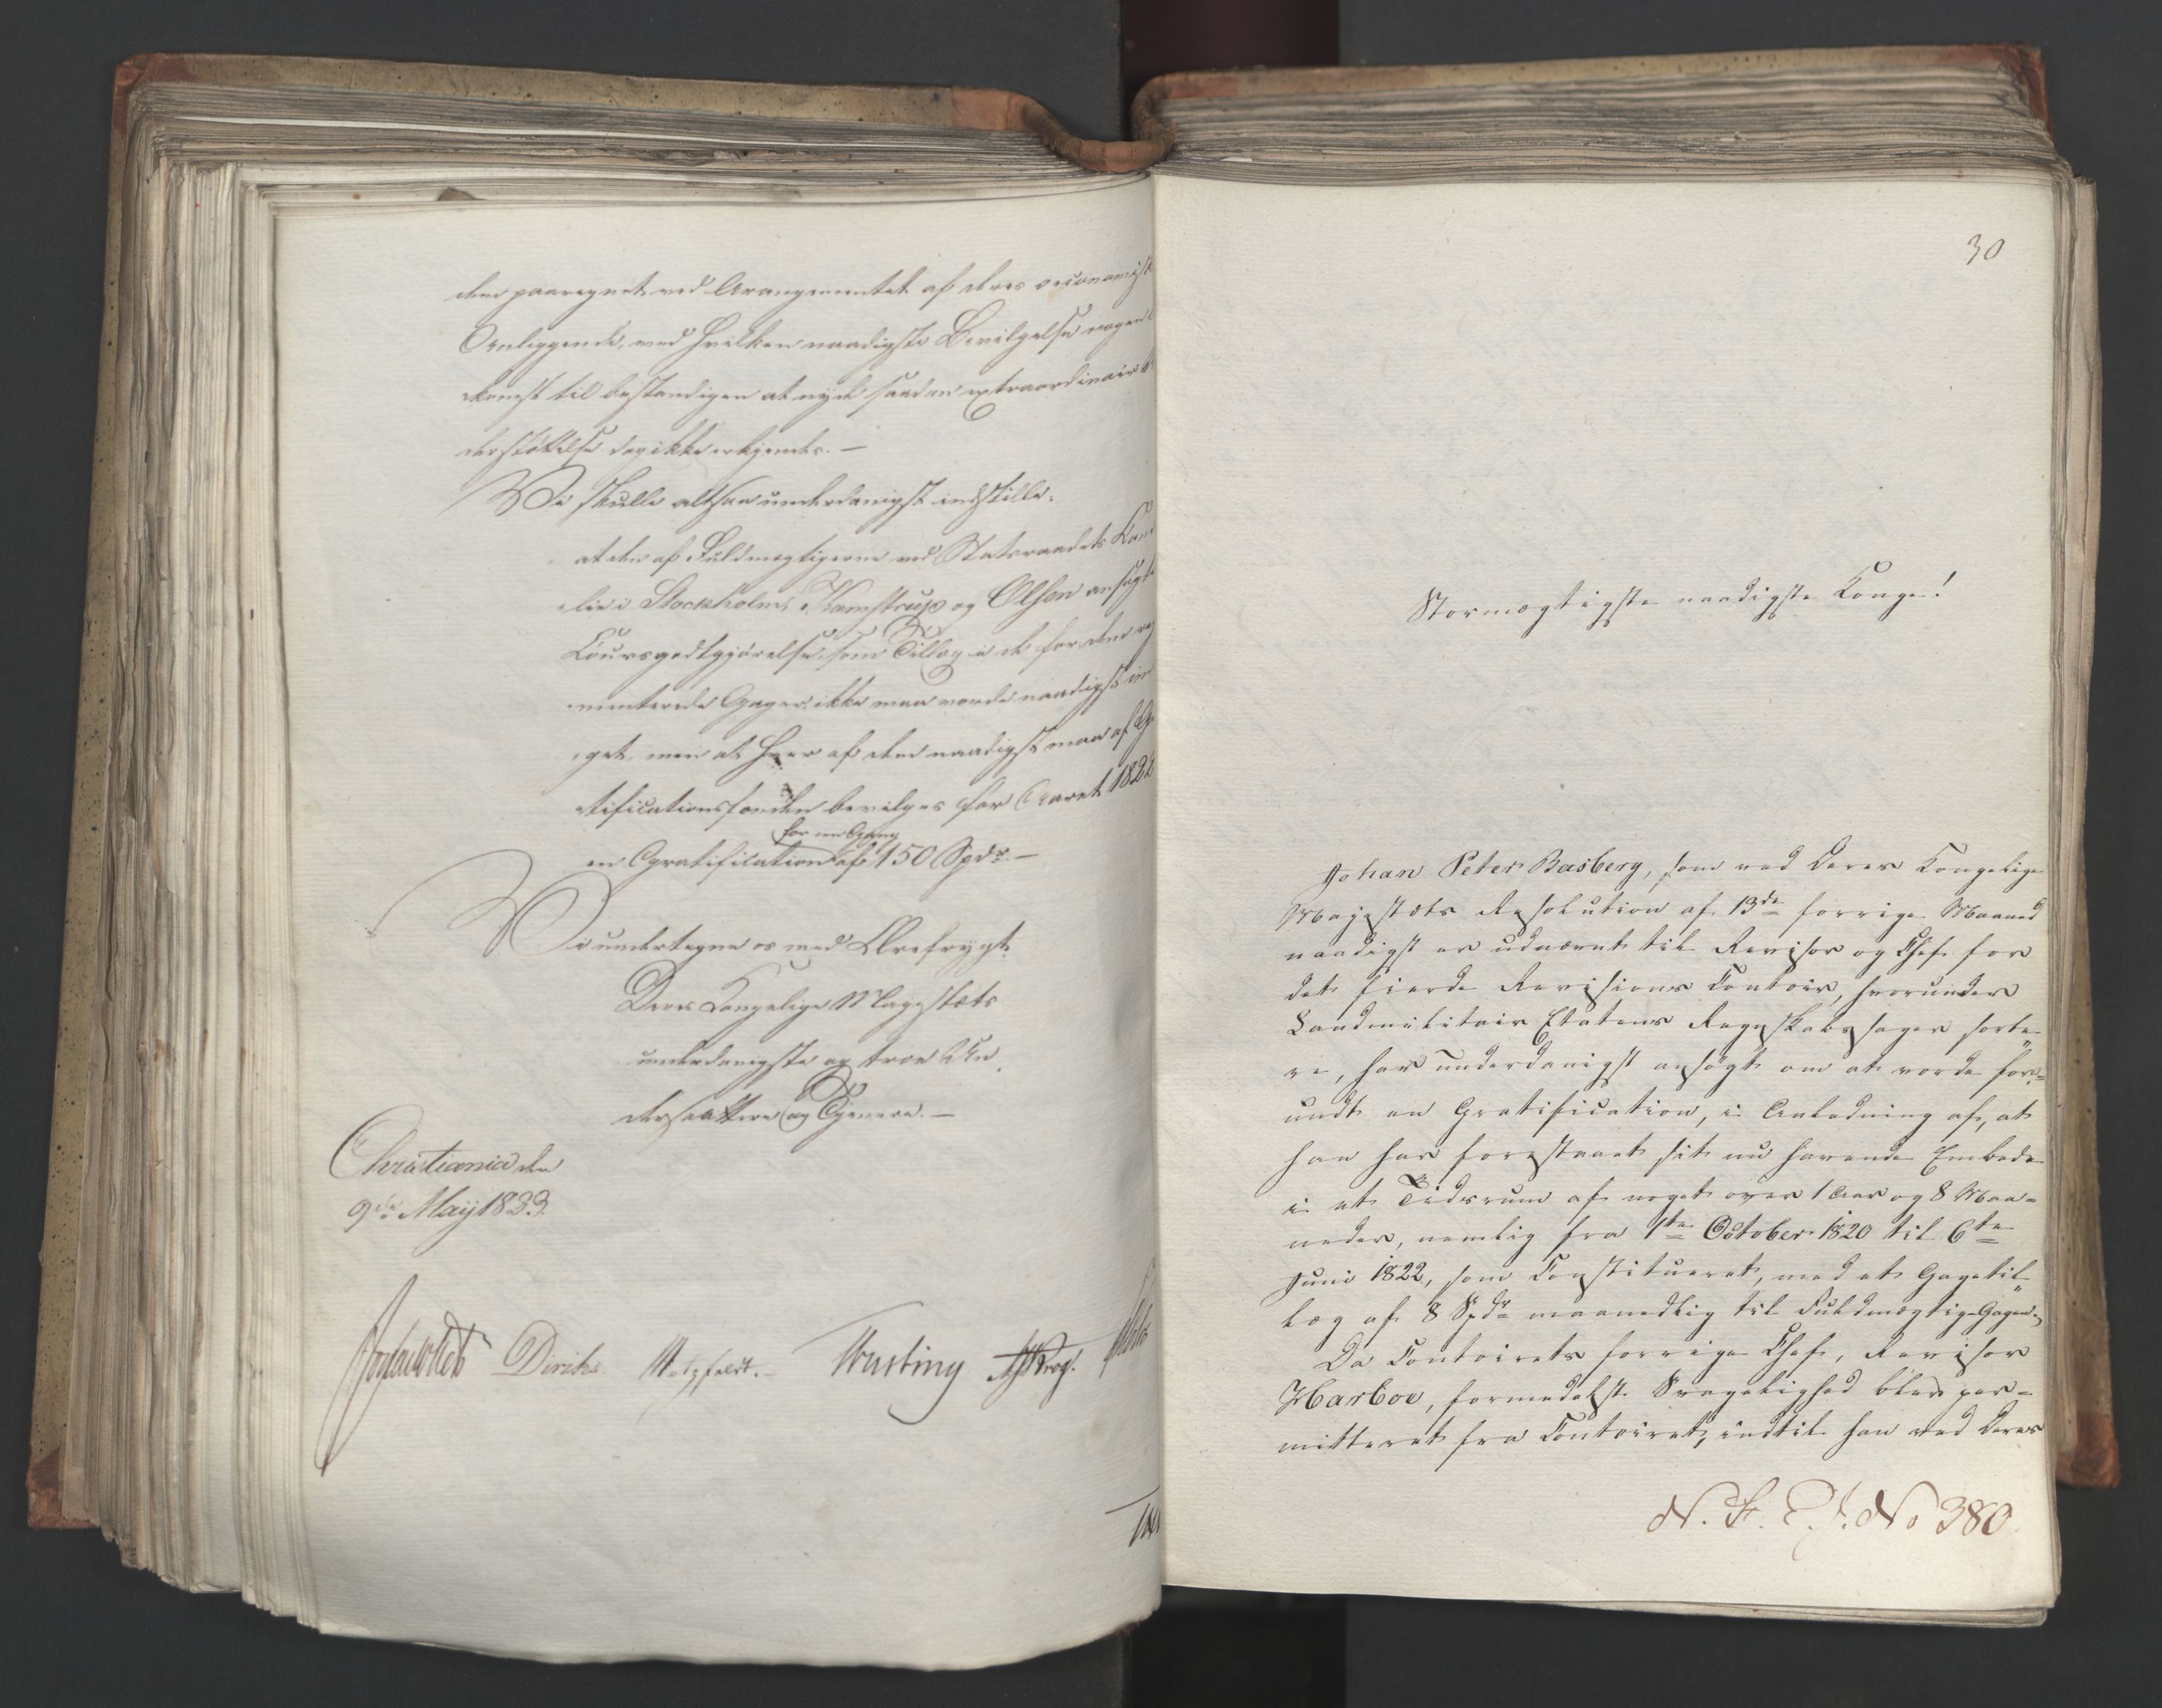 den paaregnet ved Arangementet af deres oeconomisk
Anliggende, ved hvilken naadigste Bevilgelse nogen
komst til bestandigen at nyde saadan extraordinair
derstöttelse dog ikke erkjendes. —
Vi skulle altsaa underdanigst indstille:
at den af Fuldmægtigerne ved Statsraadets Can
celie i Stockholm, Kamstrup og Olsen ansögte
Coursgodtgjörelse, som Tillæg i de for dem reg
menterede Gager, ikke maa vorde naadigst
get, men at hver af dem naadigst maa af G
atificationsfonden bevilges for Aaret 1822
for een Gang
en Gratification af 150 Spdr. —
Vi undertegne os med Ærefrygt
Deres Kongelige Majestæts
underdanigste og troe Un
dersaattere og Tjenere. —
Christiania den
9de May 1823.
Diriks Motzfeldt. Krog.
30
Stormægtigste naadigste Konge!
Johan Peter Basberg, som ved Deres Kongelige
Majestæts Resolution af 13de forrige Maaned
naadigst er udnævnt til Revisor og Chef for
det fierde Revisions Contoir, hvorunder
Landmilitair Etatens Regnskabssager sorte„
re, har underdanigst ansögt om at vorde for„
undt en Gratification, i Anledning af, at
han har forestaaet sit nu havende Embede
i et Tidsrum af noget over 1 Aar og 8 Maa=
neder, nemlig fra 1te October 1820 til 6te
Juni 1822, som Constitueret, med et Gagetil„
læg af 8 Spdr maanedlig til Fuldmægtig-Gagen.
Da Contoirets forrige Chef, Revisor
Harboe, formedelst Svagelighed blev per=
mitteret fra Contoiret, indtil han ved Deres
No 380.